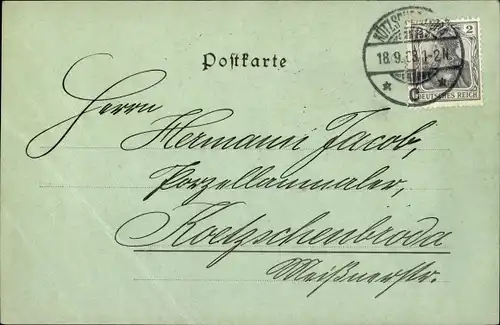 KÖTZSCHENBRODA
18.9.03.1-2N.
* C *
2
DEUTSCHES REICH
Postkarte
Herrn
Hermann Jacob,
Porzellanmaler,
Koetzschenbroda
Meißnerstr.